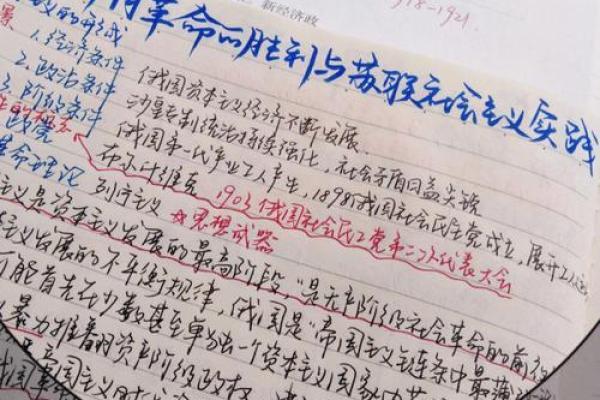 新经济政
1918-1921.
月革命的胜利与苏联社会主义实践
政的形成
1.经济条件
2.政治条件
3.阶级条件
俄国资本主义经济不断发展.
沙皇专制统治持续强化，社会矛盾日益尖锐
俄国第一代产业工人产生，1898俄国社会民主党成立，展开工人运
布尔什维克 1903俄国社会民主工党第二次代表大会
革命理论 列宁主义 ☆思想武器
主义是资本主义发展的最高阶段，“是无产阶级社会革命的前
主义发展的不平衡规律，俄国是“帝国主义链条中最薄
可能首先在少数甚至单独一个资本主义国家中
暴力推翻资产阶级政权